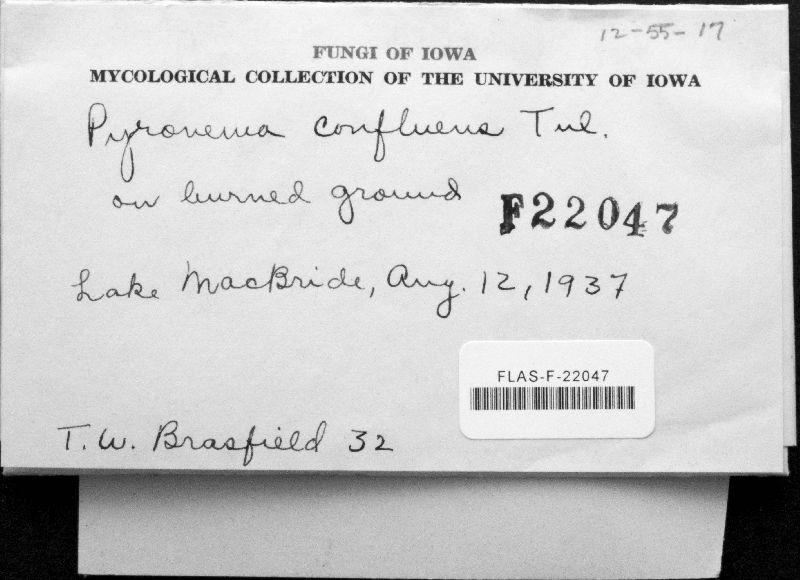 12-55-17
FUNGI OF IOWA
MYCOLOGICAL COLLECTION OF THE UNIVERSITY OF IOWA
Pyronema confluens Tul.
on burned ground
F22047
Lake MacBride, Aug. 12, 1937
FLAS-F-22047
T. W. Brasfield 32